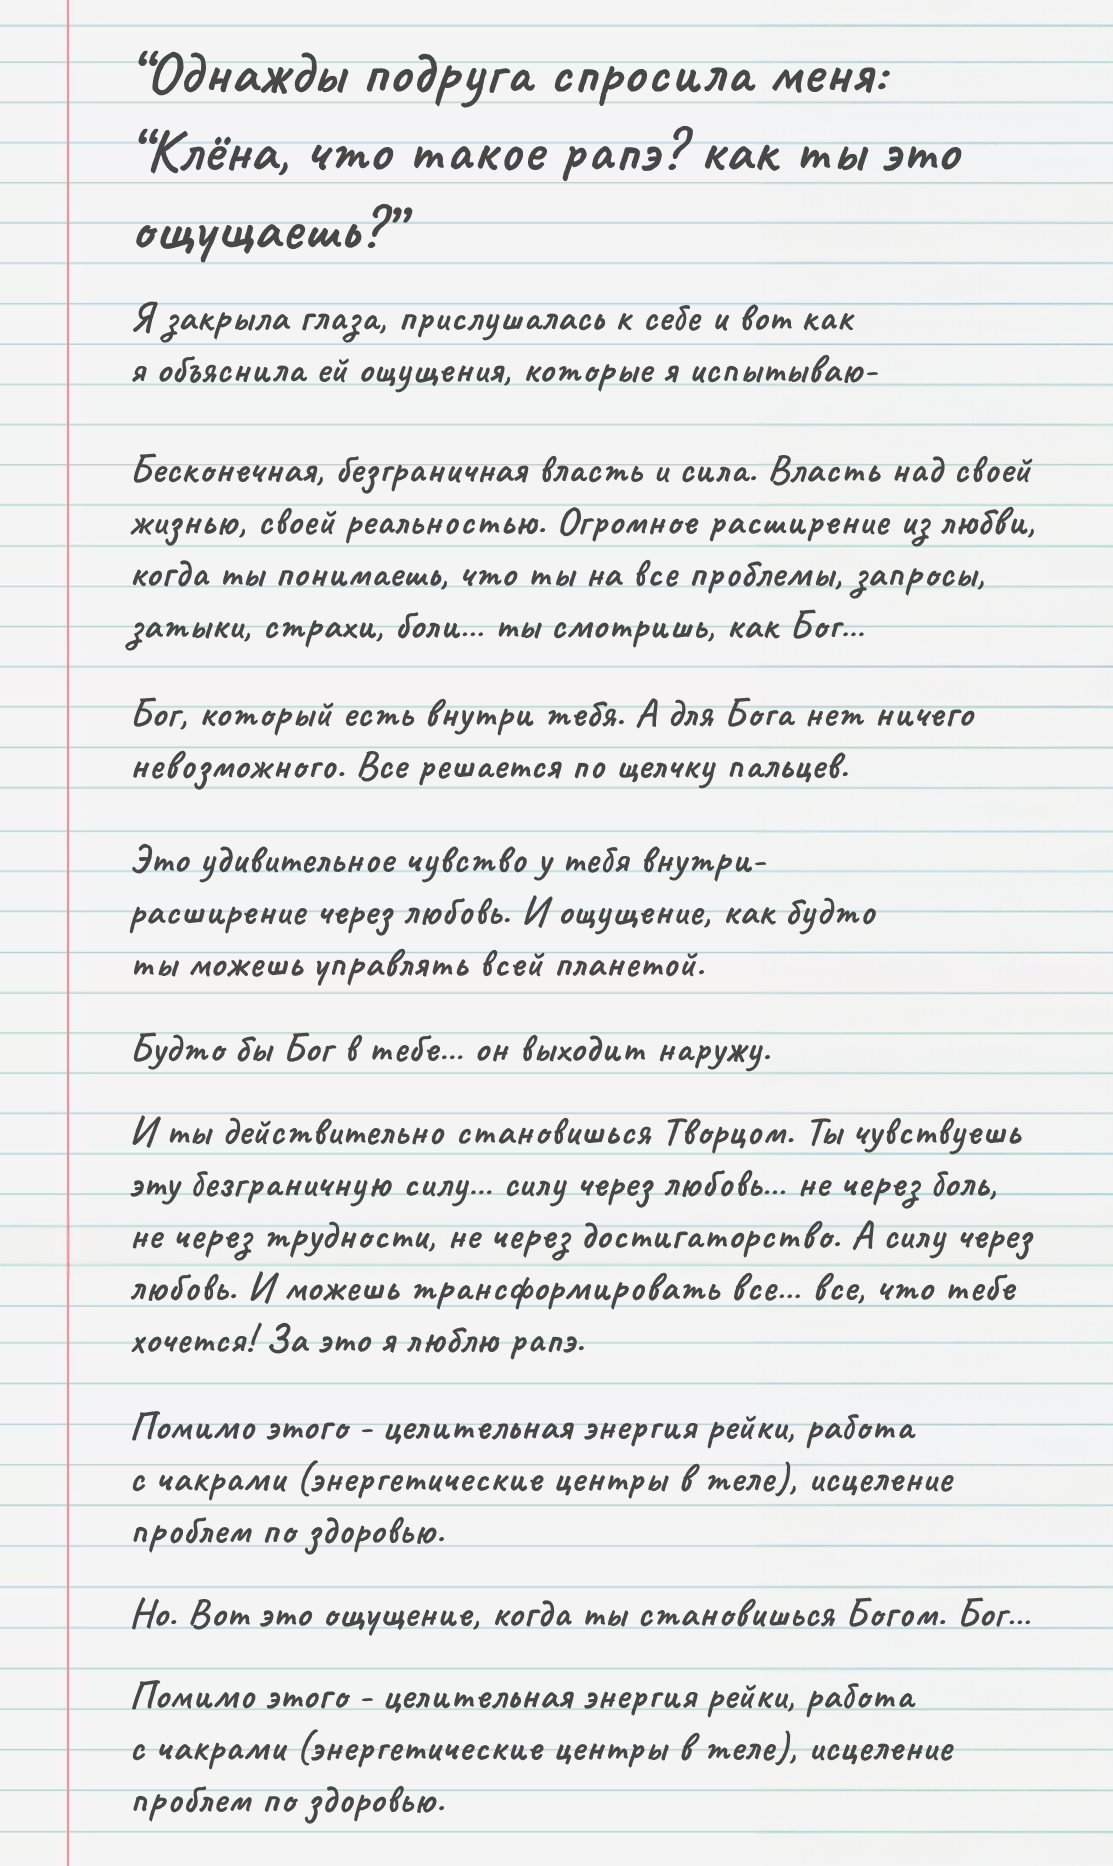 “Однажды подруга спросила меня:
“Клёна, что такое рапэ? как ты это
ощущаешь?”
Я закрыла глаза, прислушалась к себе и вот как
я объяснила ей ощущения, которые я испытываю-
Бесконечная, безграничная власть и сила. Власть над своей
жизнью, своей реальностью. Огромное расширение из любви,
когда ты понимаешь, что ты на все проблемы, запросы,
затыки, страхи, боли... ты смотришь, как Бог...
Бог, который есть внутри тебя. А для Бога нет ничего
невозможного. Все решается по щелчку пальцев.
Это удивительное чувство у тебя внутри-
расширение через любовь. И ощущение, как будто
ты можешь управлять всей планетой.
Будто бы Бог в тебе... он выходит наружу.
И ты действительно становишься Творцом. Ты чувствуешь
эту безграничную силу... силу через любовь... не через боль,
не через трудности, не через достигаторство. А силу через
любовь. И можешь трансформировать все... все, что тебе
хочется! За это я люблю рапэ.
Помимо этого - целительная энергия рейки, работа
с чакрами (энергетические центры в теле), исцеление
проблем по здоровью.
Но. Вот это ощущение, когда ты становишься Богом. Бог...
Помимо этого - целительная энергия рейки, работа
с чакрами (энергетические центры в теле), исцеление
проблем по здоровью.